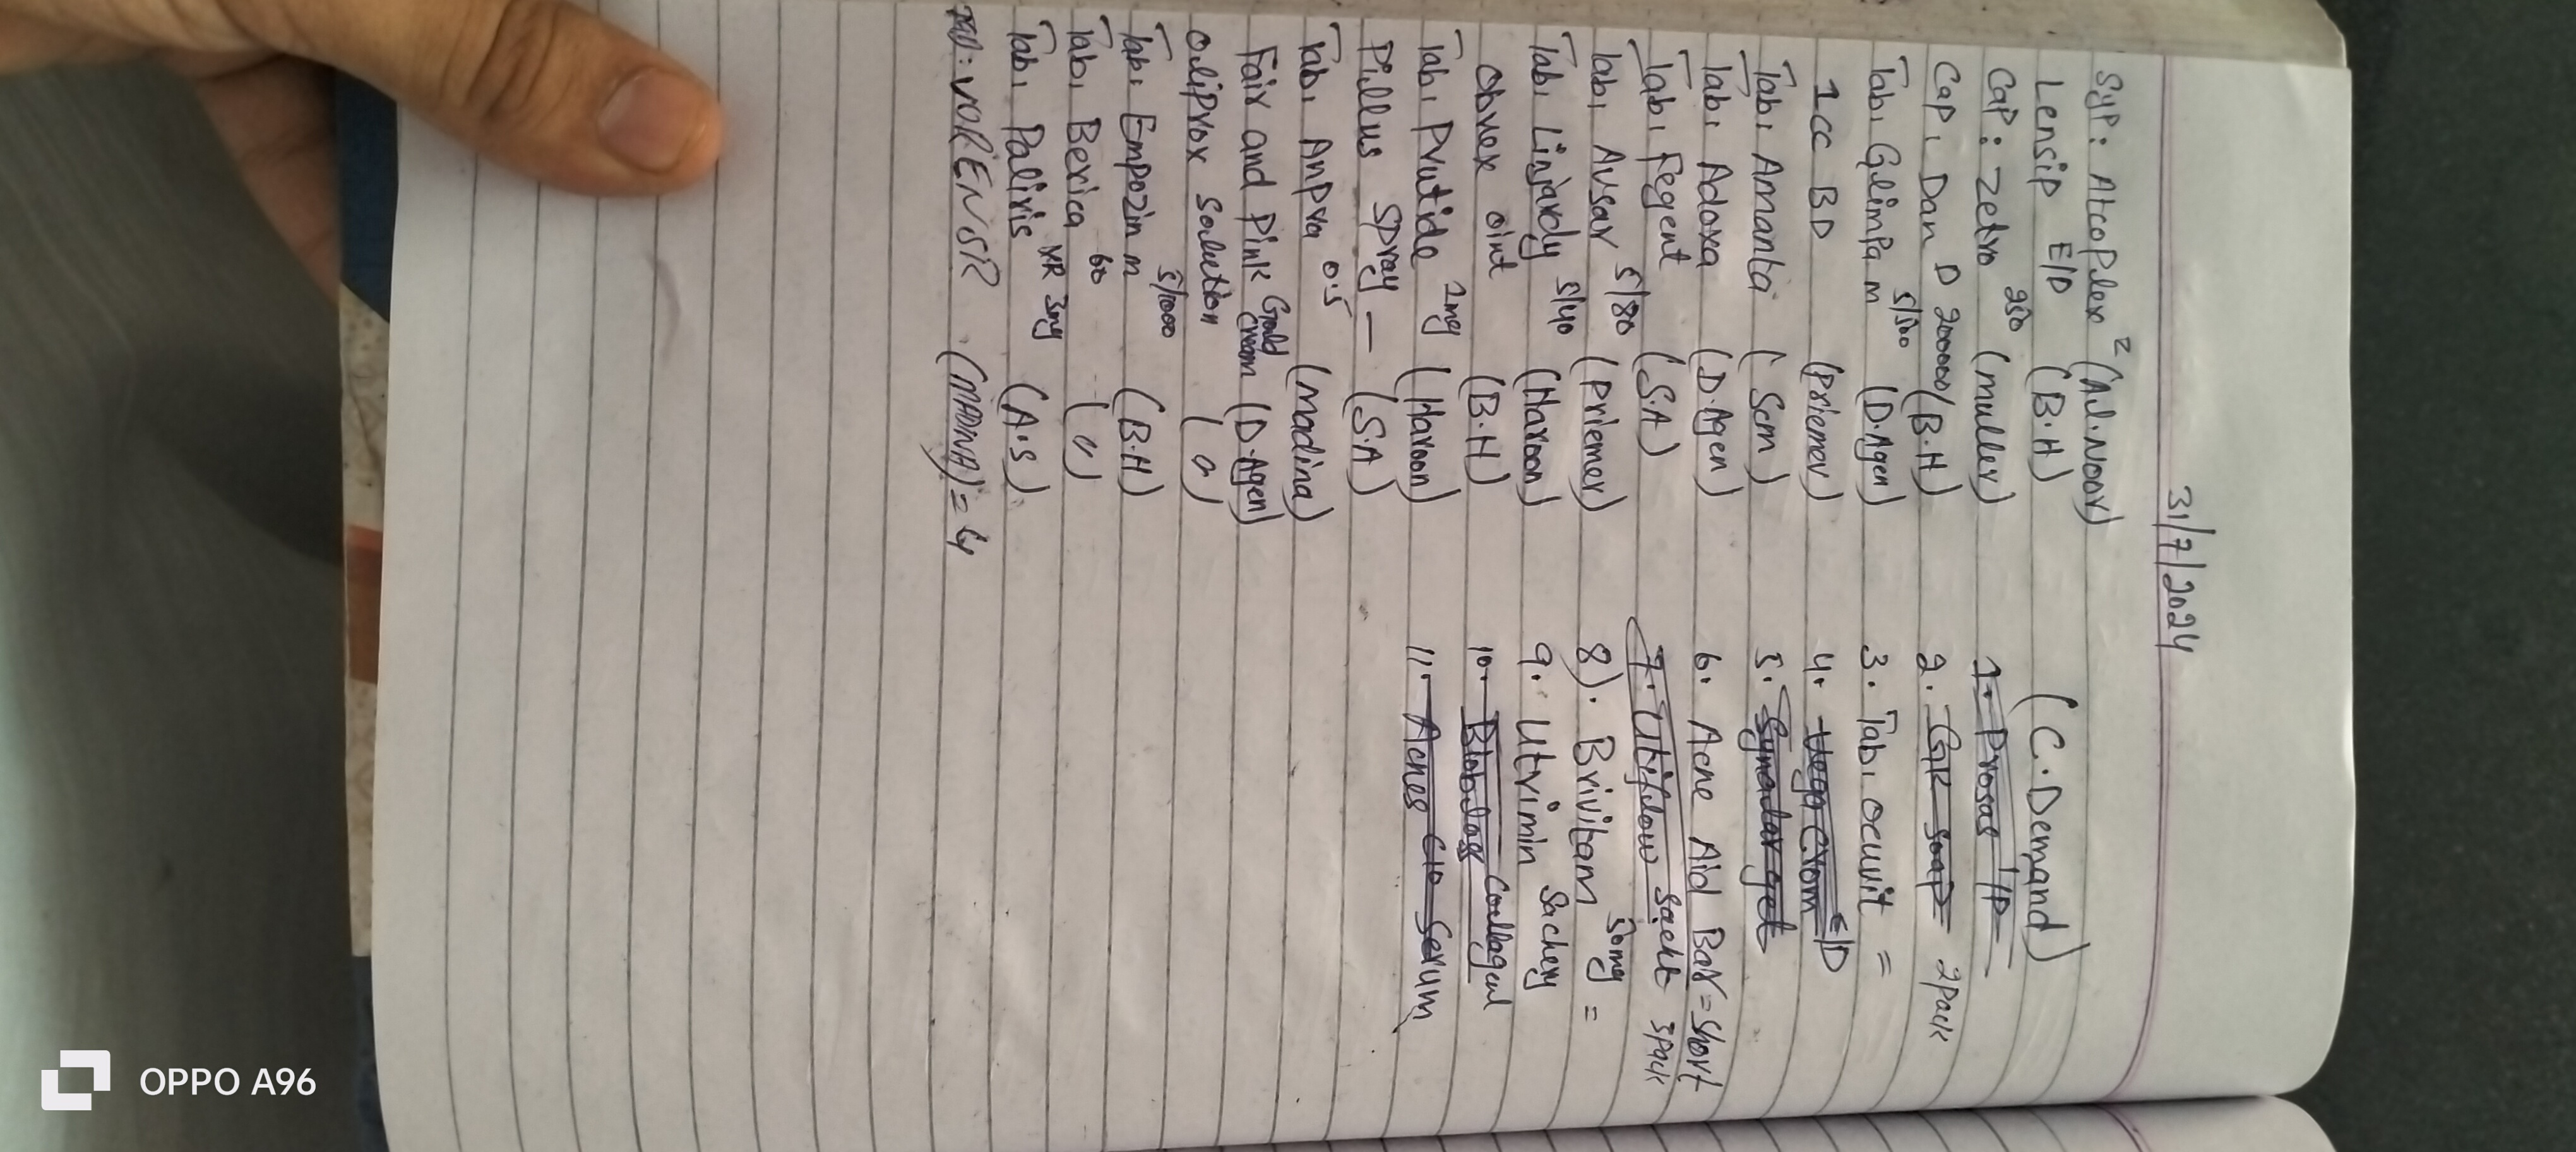 31/7/2024
Syp: Atcoplex 2 (Al.Noor)
Lensip E/D (B.H)
Cap: Zetro 250 (muller)
Cap, Dan D 200000 (B.H)
Tab, Glimpa m 5/500 (D.Agen)
1cc BD (Priemer)
Tab, Amanta (Scm)
Tab, Adoxa (D.Agen)
Tab, Fegent (S.A)
Tab, Avsar 5/80 (Priemer)
Tab, Linjardy 5/40 (Haroon)
Obnex oint (B.H)
Tab, Prutide 2mg (Haroon)
Pillus Spray — (S.A)
Tab, Anpra 0.5 (madina)
Fair and Pink Gold cream (D.Agen)
Oliprox Solution (")
Tab: Empozin m 5/1000 (B.H)
Tab, Bexica 60 (")
Tab, Paliris XR 3mg (A.S)
VORENSR (MAANA) = 4
(C.Demand)
1. Prosas I/P
2. GK Soap 2Pack
3. Tab, Ocuvit =
4. Crom E/D
5. gel
6. Acne Aid Bar = Short
7. Utiflow Sacht 3Pack
8). Brivitam 50mg =
9. Utrimin Sachey
10. Collagul
11. Acnes C10 Serum
OPPO A96